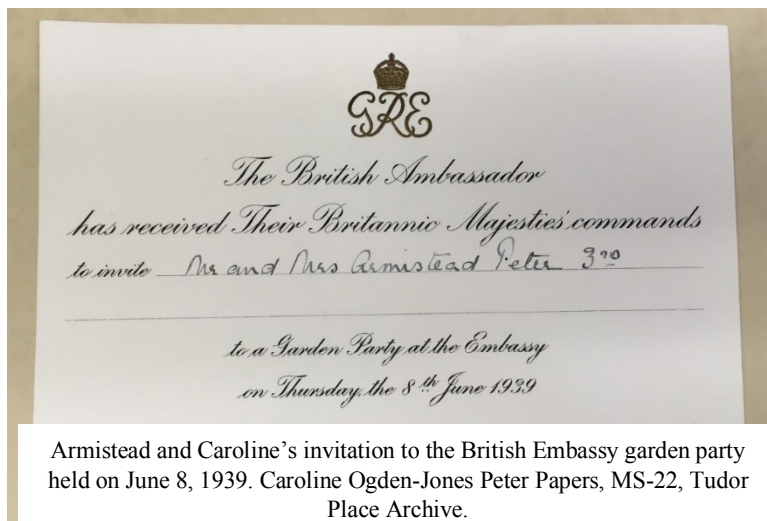 GRE
The British Ambassador
has received Their Britannic Majesties' commands
to invite Mr and Mrs Armistead Peter 3rd
to a Garden Party at the Embassy
on Thursday, the 8th June 1939
Armistead and Caroline’s invitation to the British Embassy garden party
held on June 8, 1939. Caroline Ogden-Jones Peter Papers, MS-22, Tudor
Place Archive.